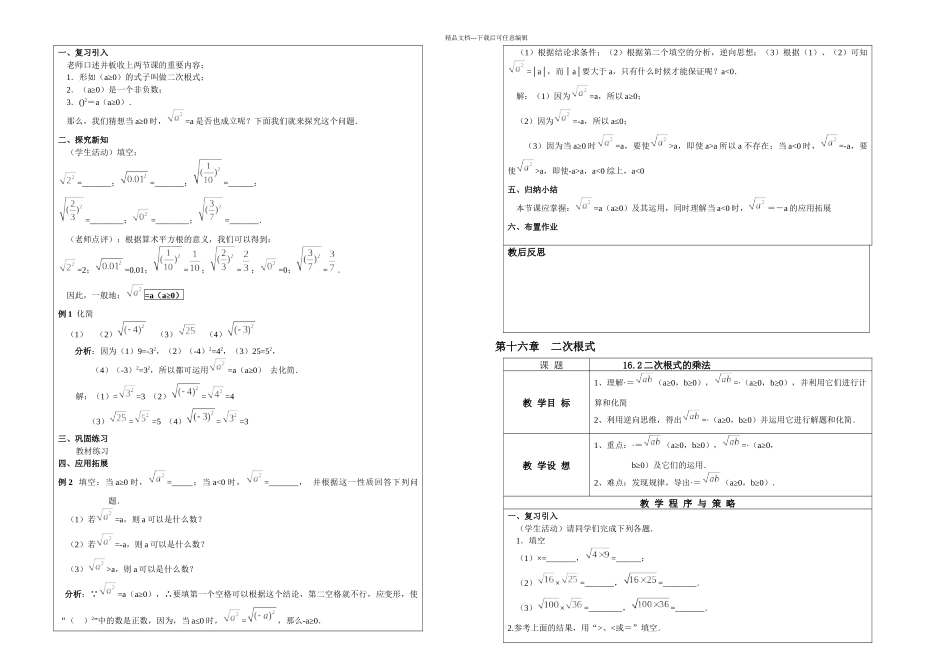 精品文档---下载后可任意编辑
一、复习引入
老师口述并板收上两节课的重要内容；
1．形如（a≥0）的式子叫做二次根式；
2．（a≥0）是一个非负数；
3．()²＝a（a≥0）．
那么，我们猜想当a≥0时，√a² =a是否也成立呢？下面我们就来探究这个问题．
二、探究新知
（学生活动）填空：
√2² =_______；√0.01² =_______；√(1/10)² =______；
√(2/3)² =________；√0² =________；√(3/7)² =_______．
（老师点评）：根据算术平方根的意义，我们可以得到：
√2² =2；√0.01² =0.01；√(1/10)² = 1/10；√(2/3)² = 2/3；√0² =0；√(3/7)² = 3/7．
因此，一般地：√a² =a（a≥0）
例1 化简
（1） （2）√(-4)² （3）√25 （4）√(-3)²
分析：因为（1）9=-32，（2）（-4）2=42，（3）25=52，
（4）（-3）2=32，所以都可运用√a² =a（a≥0） 去化简．
解：（1）=√3² =3 （2）√(-4)² =√4² =4
（3）√25 =√5² =5 （4）√(-3)² =√3² =3
三、巩固练习
教材练习
四、应用拓展
例2 填空：当a≥0时，√a² =_____；当a<0时，√a² =_______， 并根据这一性质回答下列问
题．
（1）若√a² =a，则a可以是什么数？
（2）若√a² =-a，则a可以是什么数？
（3）√a² >a，则a可以是什么数？
分析：∵√a² =a（a≥0），∴要填第一个空格可以根据这个结论，第二空格就不行，应变形，使
“（ ）2”中的数是正数，因为，当a≤0时，√a² =√(-a)²，那么-a≥0．
（1）根据结论求条件；（2）根据第二个填空的分析，逆向思想；（3）根据（1）、（2）可知
√a² =│a│，而│a│要大于a，只有什么时候才能保证呢？a<0．
解：（1）因为√a² =a，所以a≥0；
（2）因为√a² =-a，所以a≤0；
（3）因为当a≥0时√a² =a，要使√a² >a，即使a>a所以a不存在；当a<0时，√a² =-a，要
使√a² >a，即使-a>a，a<0综上，a<0
五、归纳小结
本节课应掌握：√a² =a（a≥0）及其运用，同时理解当a<0时，√a² ＝－a的应用拓展
六、布置作业
教后反思
第十六章 二次根式
课 题 16.2二次根式的乘法
教 学目 标
1、理解·＝√ab（a≥0，b≥0），√ab =·（a≥0，b≥0），并利用它们进行计
算和化简
2、利用逆向思维，得出√ab =·（a≥0，b≥0）并运用它进行解题和化简．
教 学设 想
1、重点：·＝√ab（a≥0，b≥0），√ab =·（a≥0，
b≥0）及它们的运用．
2、难点：发现规律，导出·＝√ab（a≥0，b≥0）．
教 学 程 序 与 策 略
一、复习引入
（学生活动）请同学们完成下列各题．
1．填空
（1）×=_______，√4×9 =______；
（2）√16 ×√25 =_______，√16×25 =________．
（3）√100 ×√36 =________，√100×36 =_______．
2.参考上面的结果，用“>、<或＝”填空．